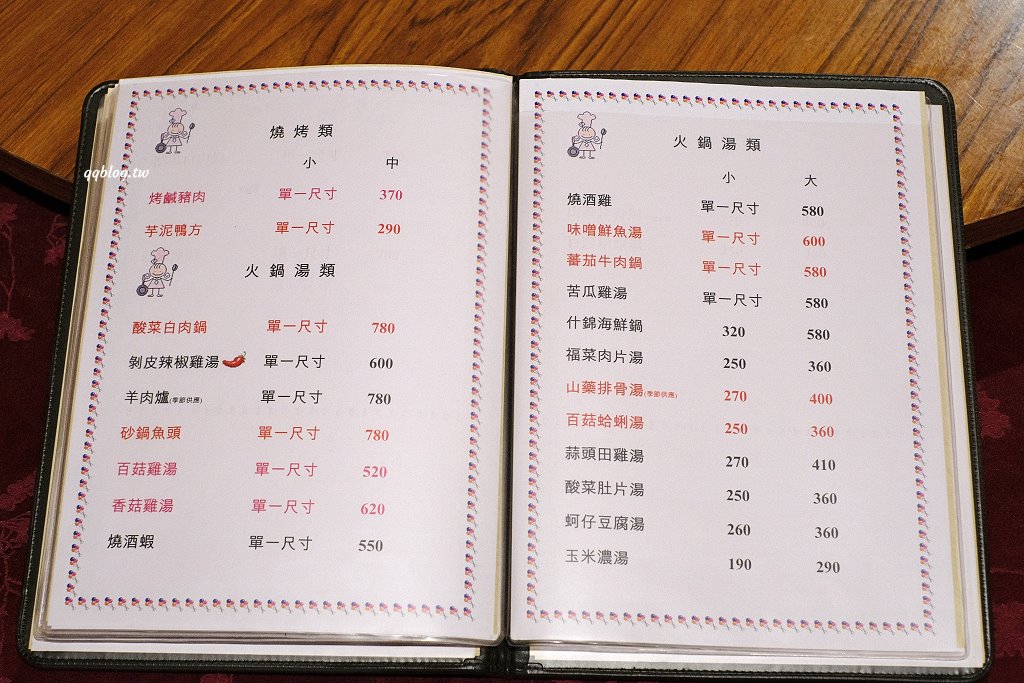 qqblog.tw
燒烤類
小 中
烤鹹豬肉 單一尺寸 370
芋泥鴨方 單一尺寸 290
火鍋湯類
酸菜白肉鍋 單一尺寸 780
剝皮辣椒雞湯 單一尺寸 600
羊肉爐(季節供應) 單一尺寸 780
砂鍋魚頭 單一尺寸 780
百菇雞湯 單一尺寸 520
香菇雞湯 單一尺寸 620
燒酒蝦 單一尺寸 550
火鍋湯類
小 大
燒酒雞 單一尺寸 580
味噌鮮魚湯 單一尺寸 600
蕃茄牛肉鍋 單一尺寸 580
苦瓜雞湯 單一尺寸 580
什錦海鮮鍋 320 580
福菜肉片湯 250 360
山藥排骨湯(季節供應) 270 400
百菇蛤蜊湯 250 360
蒜頭田雞湯 270 410
酸菜肚片湯 250 360
蚵仔豆腐湯 260 360
玉米濃湯 190 290